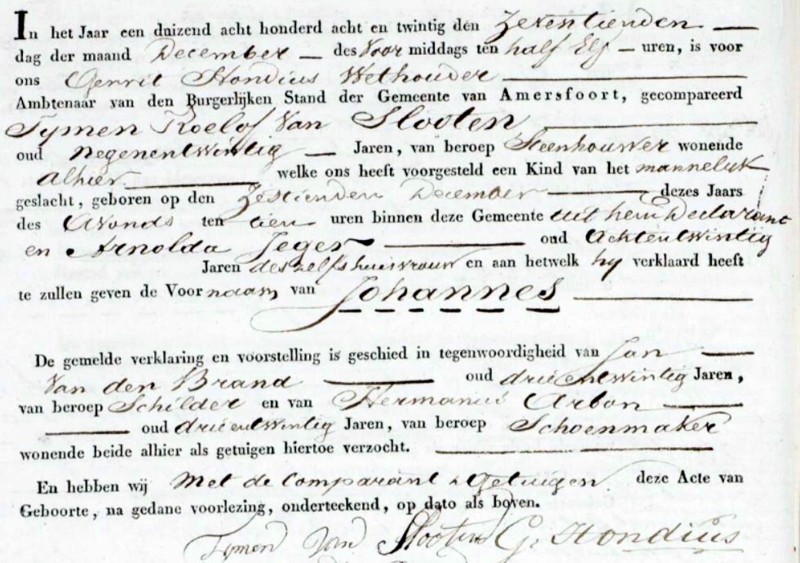 In het Jaar een duizend acht honderd acht en twintig den Zeventienden
dag der maand December des Voor middags ten half Elf uren, is voor
ons Gerrit Hondius Wethouder
Ambtenaar van den Burgerlijken Stand der Gemeente van Amersfoort, gecompareerd
Tymen Roelof Van Slooten,
oud Negenentwintig Jaren, van beroep Steenhouwer wonende
alhier welke ons heeft voorgesteld een Kind van het mannelijk
geslacht, geboren op den Zestienden December dezes Jaars
des Avonds ten tien uren binnen deze Gemeente uit hem Declarant
en Arnolda Jeger oud Achtentwintig
Jaren deszelfs huisvrouw en aan hetwelk hy verklaard heeft
te zullen geven de Voor naam van Johannes
De gemelde verklaring en voorstelling is geschied in tegenwoordigheid van Jan
Van den Brand oud drieentwintig Jaren,
van beroep Schilder en van Hermanus Arbon
oud drieentwintig Jaren, van beroep Schoenmaker
wonende beide alhier als getuigen hiertoe verzocht.
En hebben wij Met de Comparant & Getuigen deze Acte van
Geboorte, na gedane voorlezing, onderteekend, op dato als boven.
Tymen Van Slooten G. Hondius